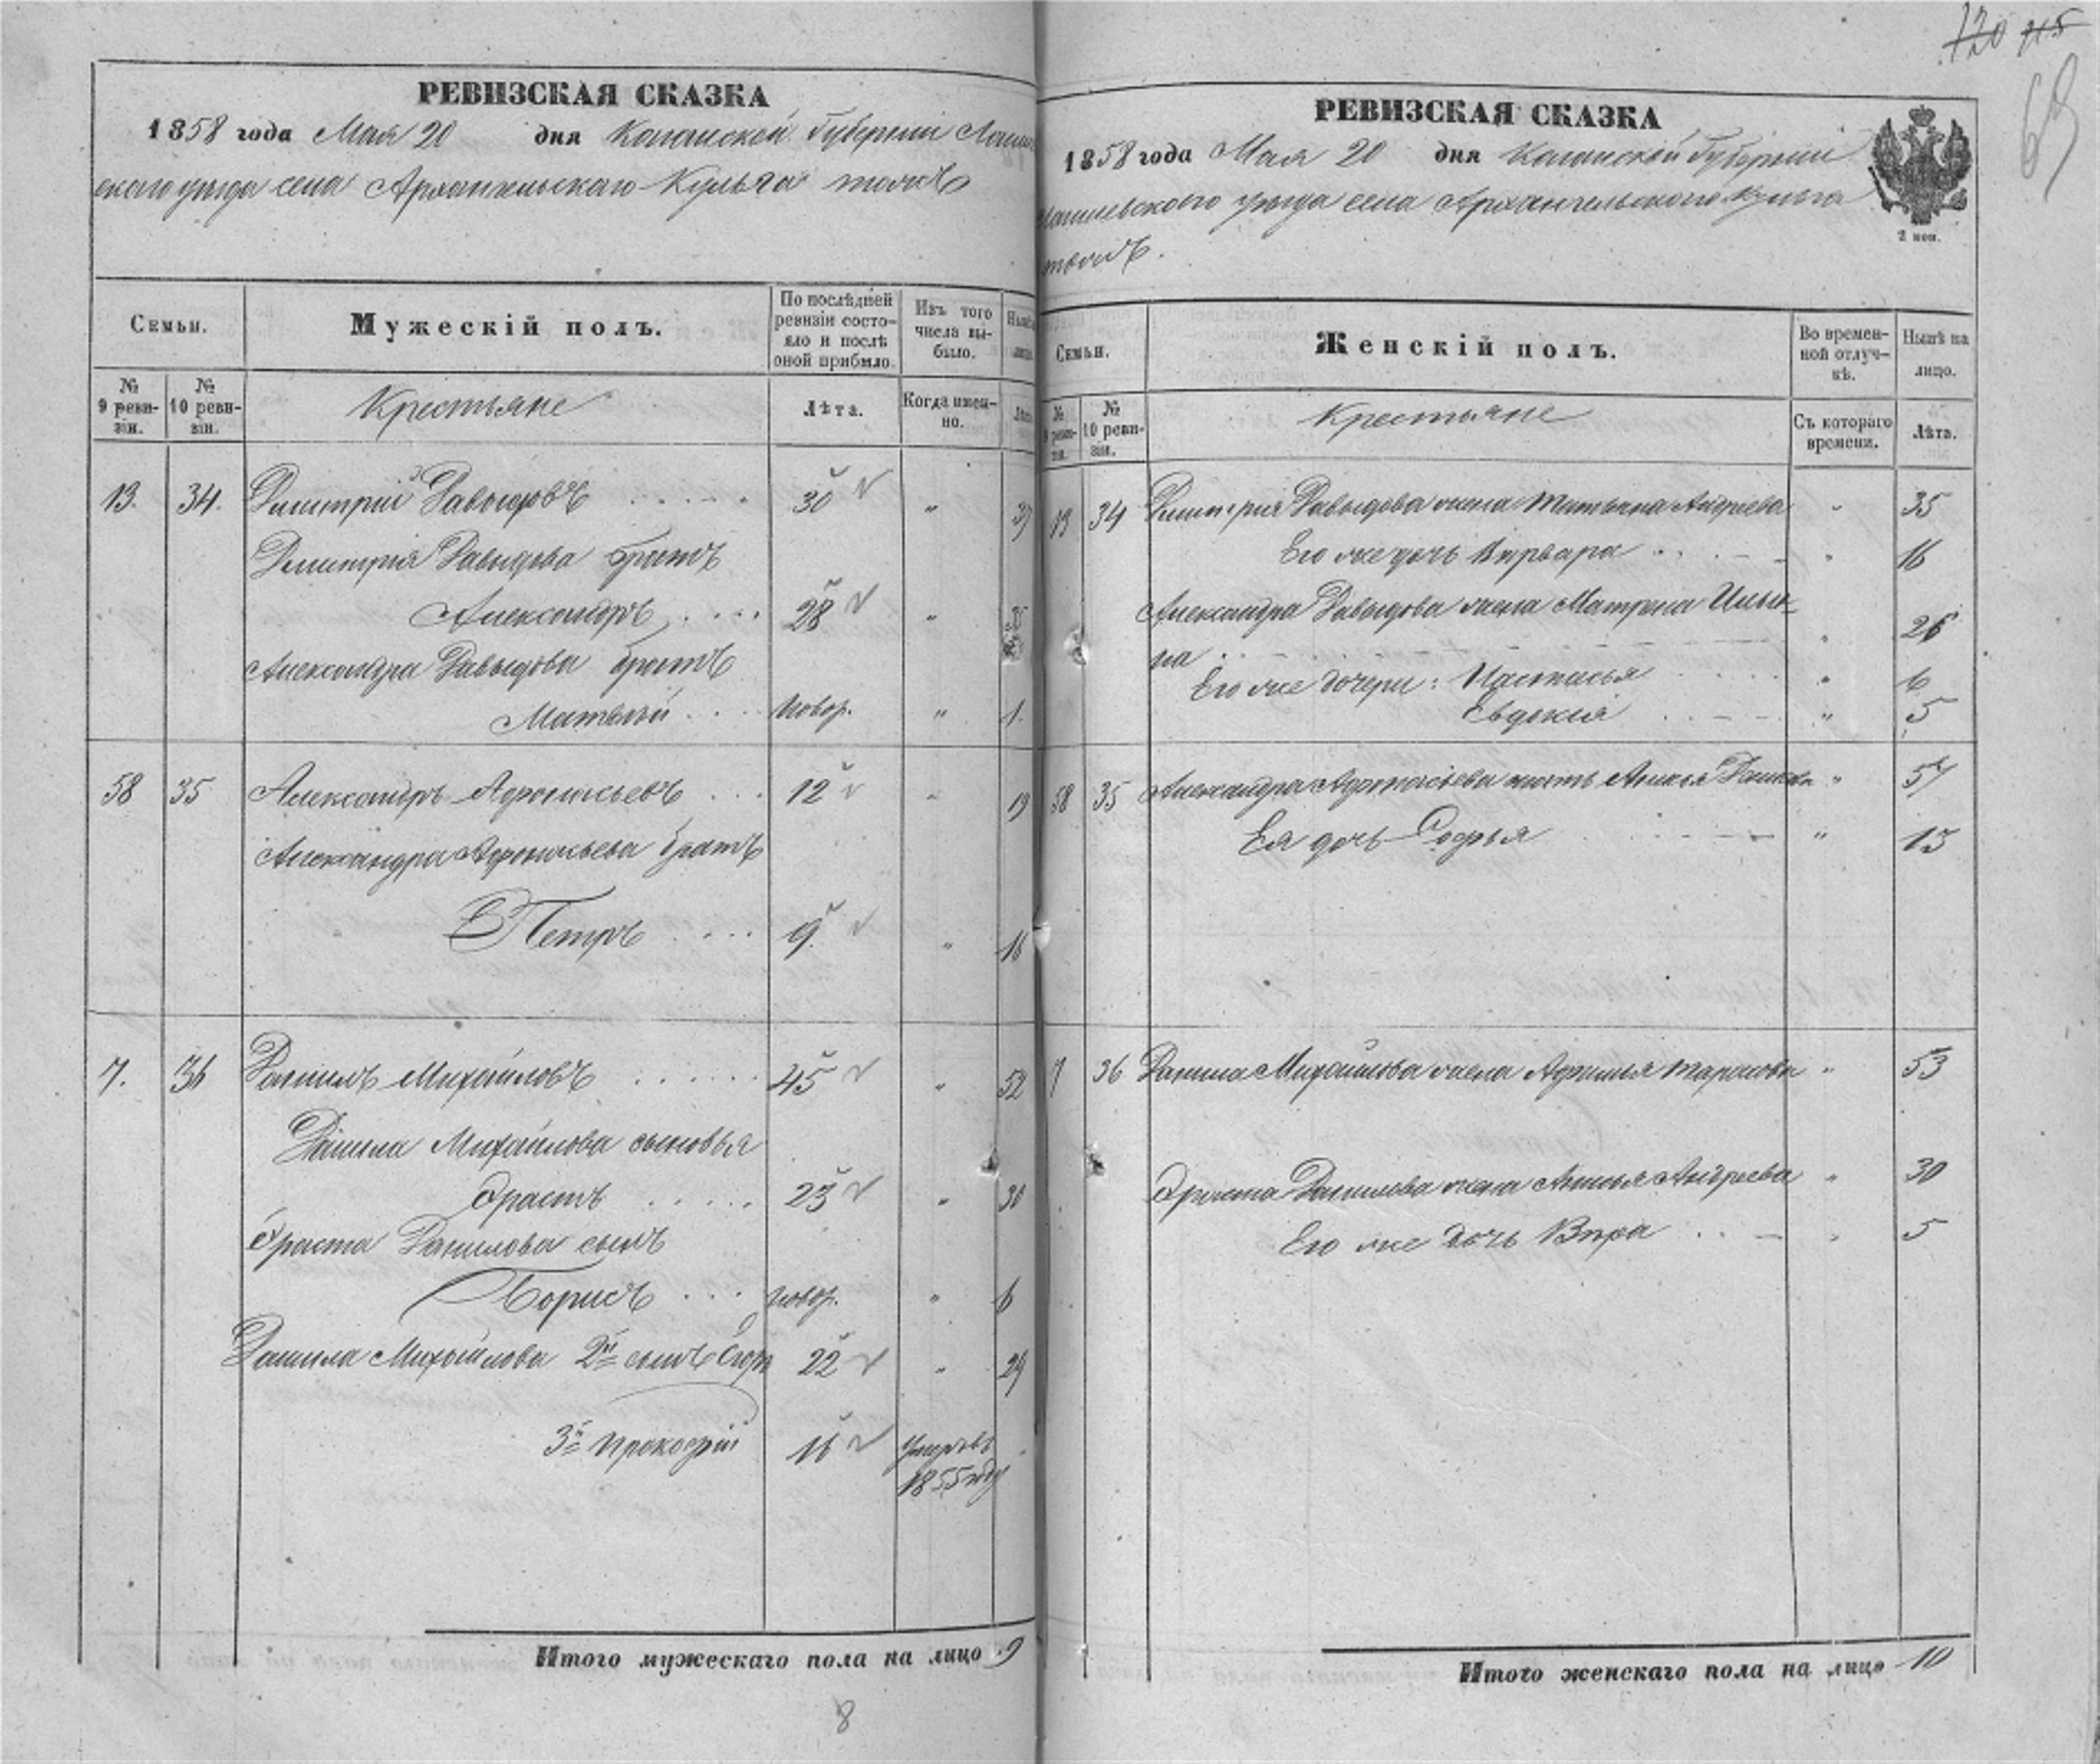 720 715
69
РЕВИЗСКАЯ СКАЗКА
1858 года Мая 20 дня Казанской Губерніи Лаише
скаго уезда села Архангельскаго
Семьи.
Мужескій полъ.
По послѣдней
ревизіи состо-
яло и послѣ
оной прибыло.
Изъ того
числа вы-
было.
№
9 реви-
зіи.
№
10 реви-
зіи.
Крестьяне
Лѣта.
Когда имен-
но.
13. 34. Дмитрій Давыдовъ 30 " 37
Дмитрія Давыдова братъ
Александръ 28 " 35
Александра Давыдова братъ
Матвей новор. " 1.
58 35 Александръ Афонасьевъ 12 " 19
Александра Афонасьева братъ
Петръ 9. " 16
7. 36 Данилъ Михайловъ 45 " 52
Данила Михайлова сыновья
Эрастъ 23 " 30
Эраста Данилова сынъ
Борисъ новор. " 6
Данила Михайлова 2й сынъ Егоръ 22 " 29
3й Прокофій 16 Умеръ въ
1855 году
Итого мужескаго пола на лицо 9
8
РЕВИЗСКАЯ СКАЗКА
1858 года Мая 20 дня Казанской Губерніи
Лаишевского уезда села Архангельского
2 коп.
Семьи.
Женскій полъ.
Во времен-
ной отлуч-
кѣ.
Нынѣ на
лицо.
№
9 реви-
зіи.
№
10 реви-
зіи.
Крестьяне
Съ котораго
времени.
Лѣта.
13 34 Дмитрія Давыдова жена Татьяна Андреева " 35
Его же дочь Варвара " 16
Александра Давыдова жена Матрена Ильи-
на " 26
Его же дочери: Настасья " 6
Евдокия " 5
58 35 Александра Афонасьева мать " 57
Ея дочь Софья " 15
7 36 Данила Михайлова жена Тарасова " 53
Эраста Данилова жена Андреева " 30
Его же дочь Вера " 5
Итого женскаго пола на лицо 10